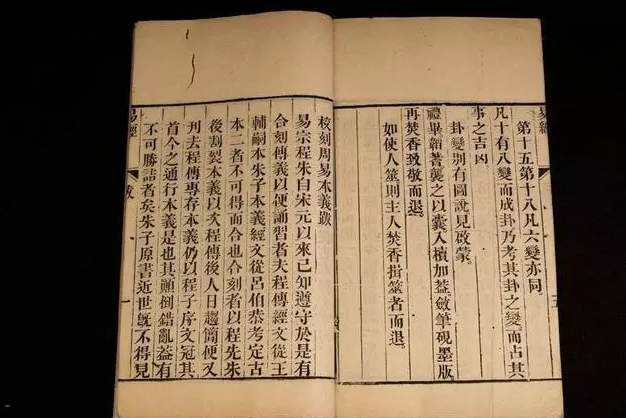 易經
第十五第十八凡六變亦同
凡十有八變而成卦乃考其卦之變而占其
事之吉凶
卦變別有圖說見啟蒙
禮畢韜蓍襲之以囊入櫝加葢斂筆硯墨版
再焚香致敬而退
如使人筮則主人焚香揖筮者而退
校刻周易本義跋
易宗程朱自宋元以來已知遵守於是有
合刻傳義以便誦習者夫程傳經文從王
輔嗣本朱子本義經文從呂伯恭考定古
本二者不可得而合也合刻者以程先朱
後割裂本義以次程傳後人日趨簡便又
刊去程傳專存本義仍以程子序文冠其
首今之通行本義是也其顛倒錯亂葢有
不可勝詰者矣朱子原書近世旣不得見
易經
跋